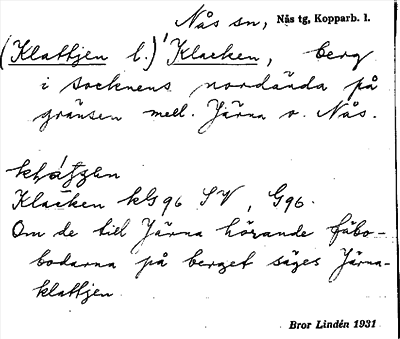 Nås sn, Nås tg, Kopparb. l.
(Klattjen l.) Klacken, berg
i socknens nordända på
gränsen mell. Järna o. Nås.
Klacken kG96 SV, G96.
Om de till Järna hörande fäbo-
bodarna på berget säges Järna-
klattjen
Bror Lindén 1931